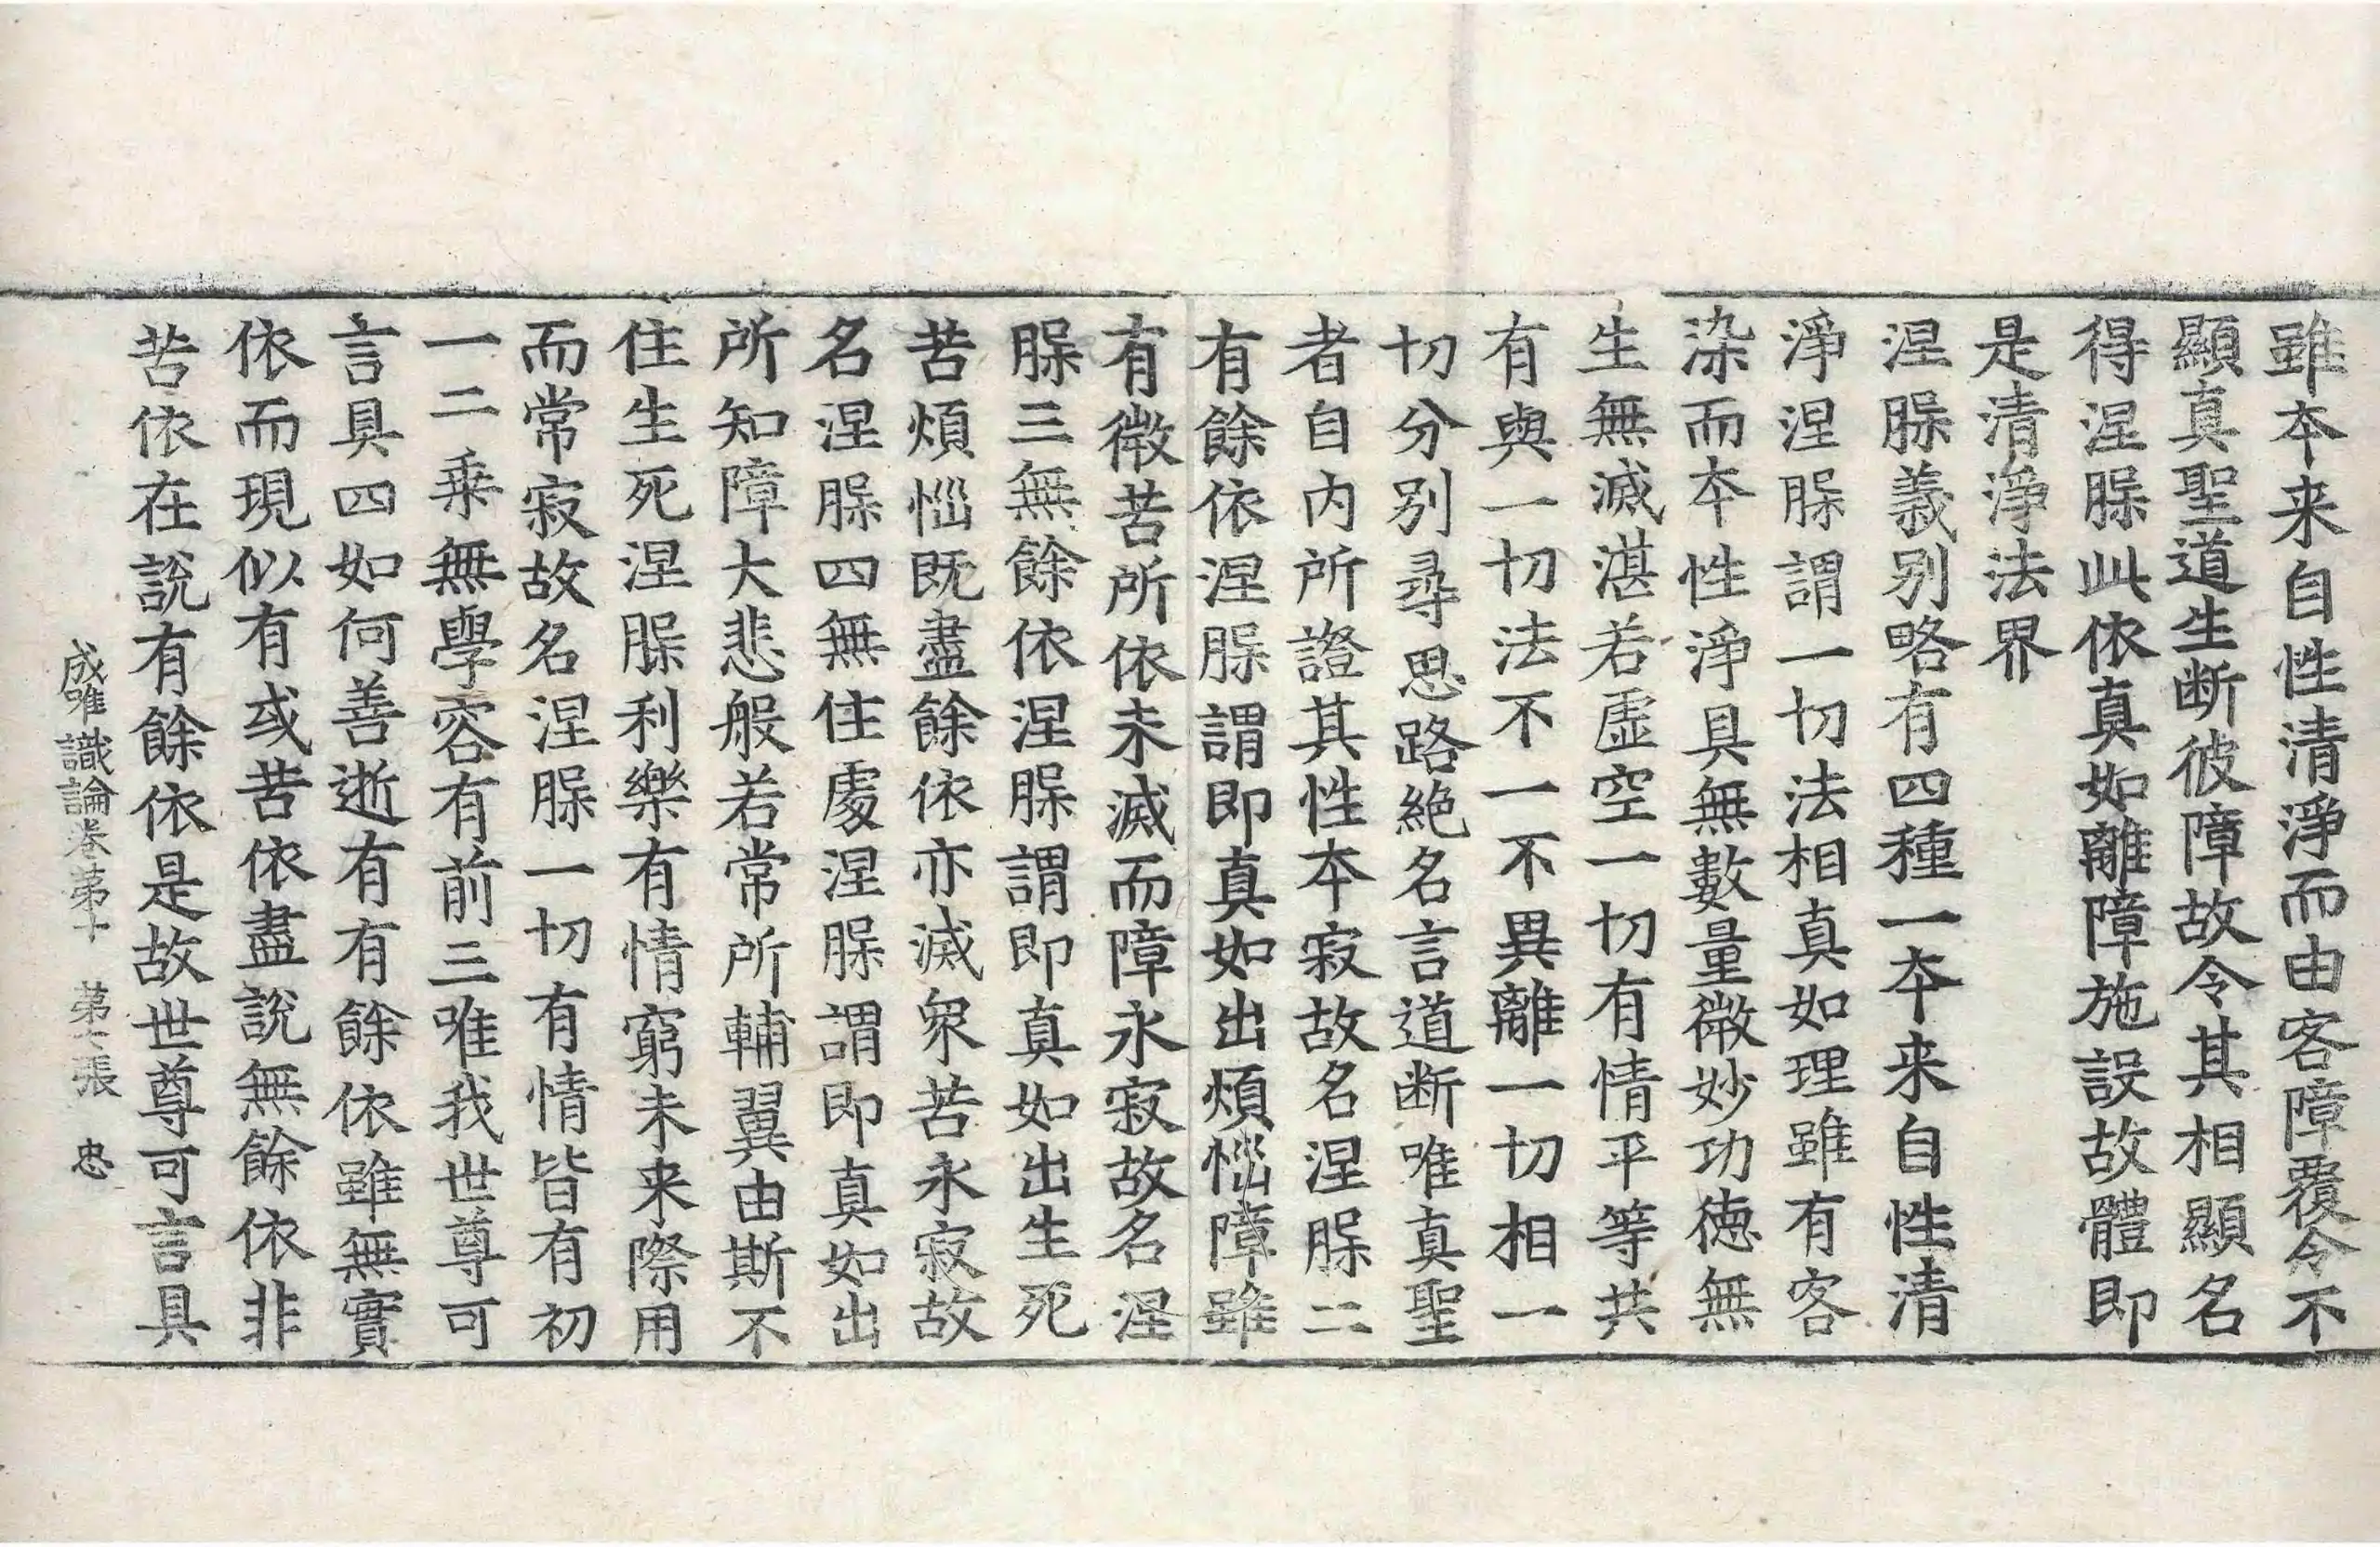 雖本来自性清淨而由客障覆令不
顯真聖道生断彼障故令其相顯名
得涅㬳此依真如離障施設故體即
是清淨法界
涅㬳義别略有四種一本来自性清
淨涅㬳謂一切法相真如理雖有客
染而本性淨具無數量微妙功德無
生無滅湛若虛空一切有情平等共
有與一切法不一不異離一切相一
切分别尋思路絶名言道断唯真聖
者自内所證其性本寂故名涅㬳二
有餘依涅㬳謂即真如出煩惱障雖
有微苦所依未滅而障永寂故名涅
㬳三無餘依涅㬳謂即真如出生死
苦煩惱既盡餘依亦滅衆苦永寂故
名涅㬳四無住處涅㬳謂即真如出
所知障大悲般若常所輔翼由斯不
住生死涅㬳利樂有情窮未来際用
而常寂故名涅㬳一切有情皆有初
一二乘無學容有前三唯我世尊可
言具四如何善逝有有餘依雖無實
依而現似有或苦依盡説無餘依非
苦依在説有餘依是故世尊可言具
成唯識論卷第十 第七張 忠